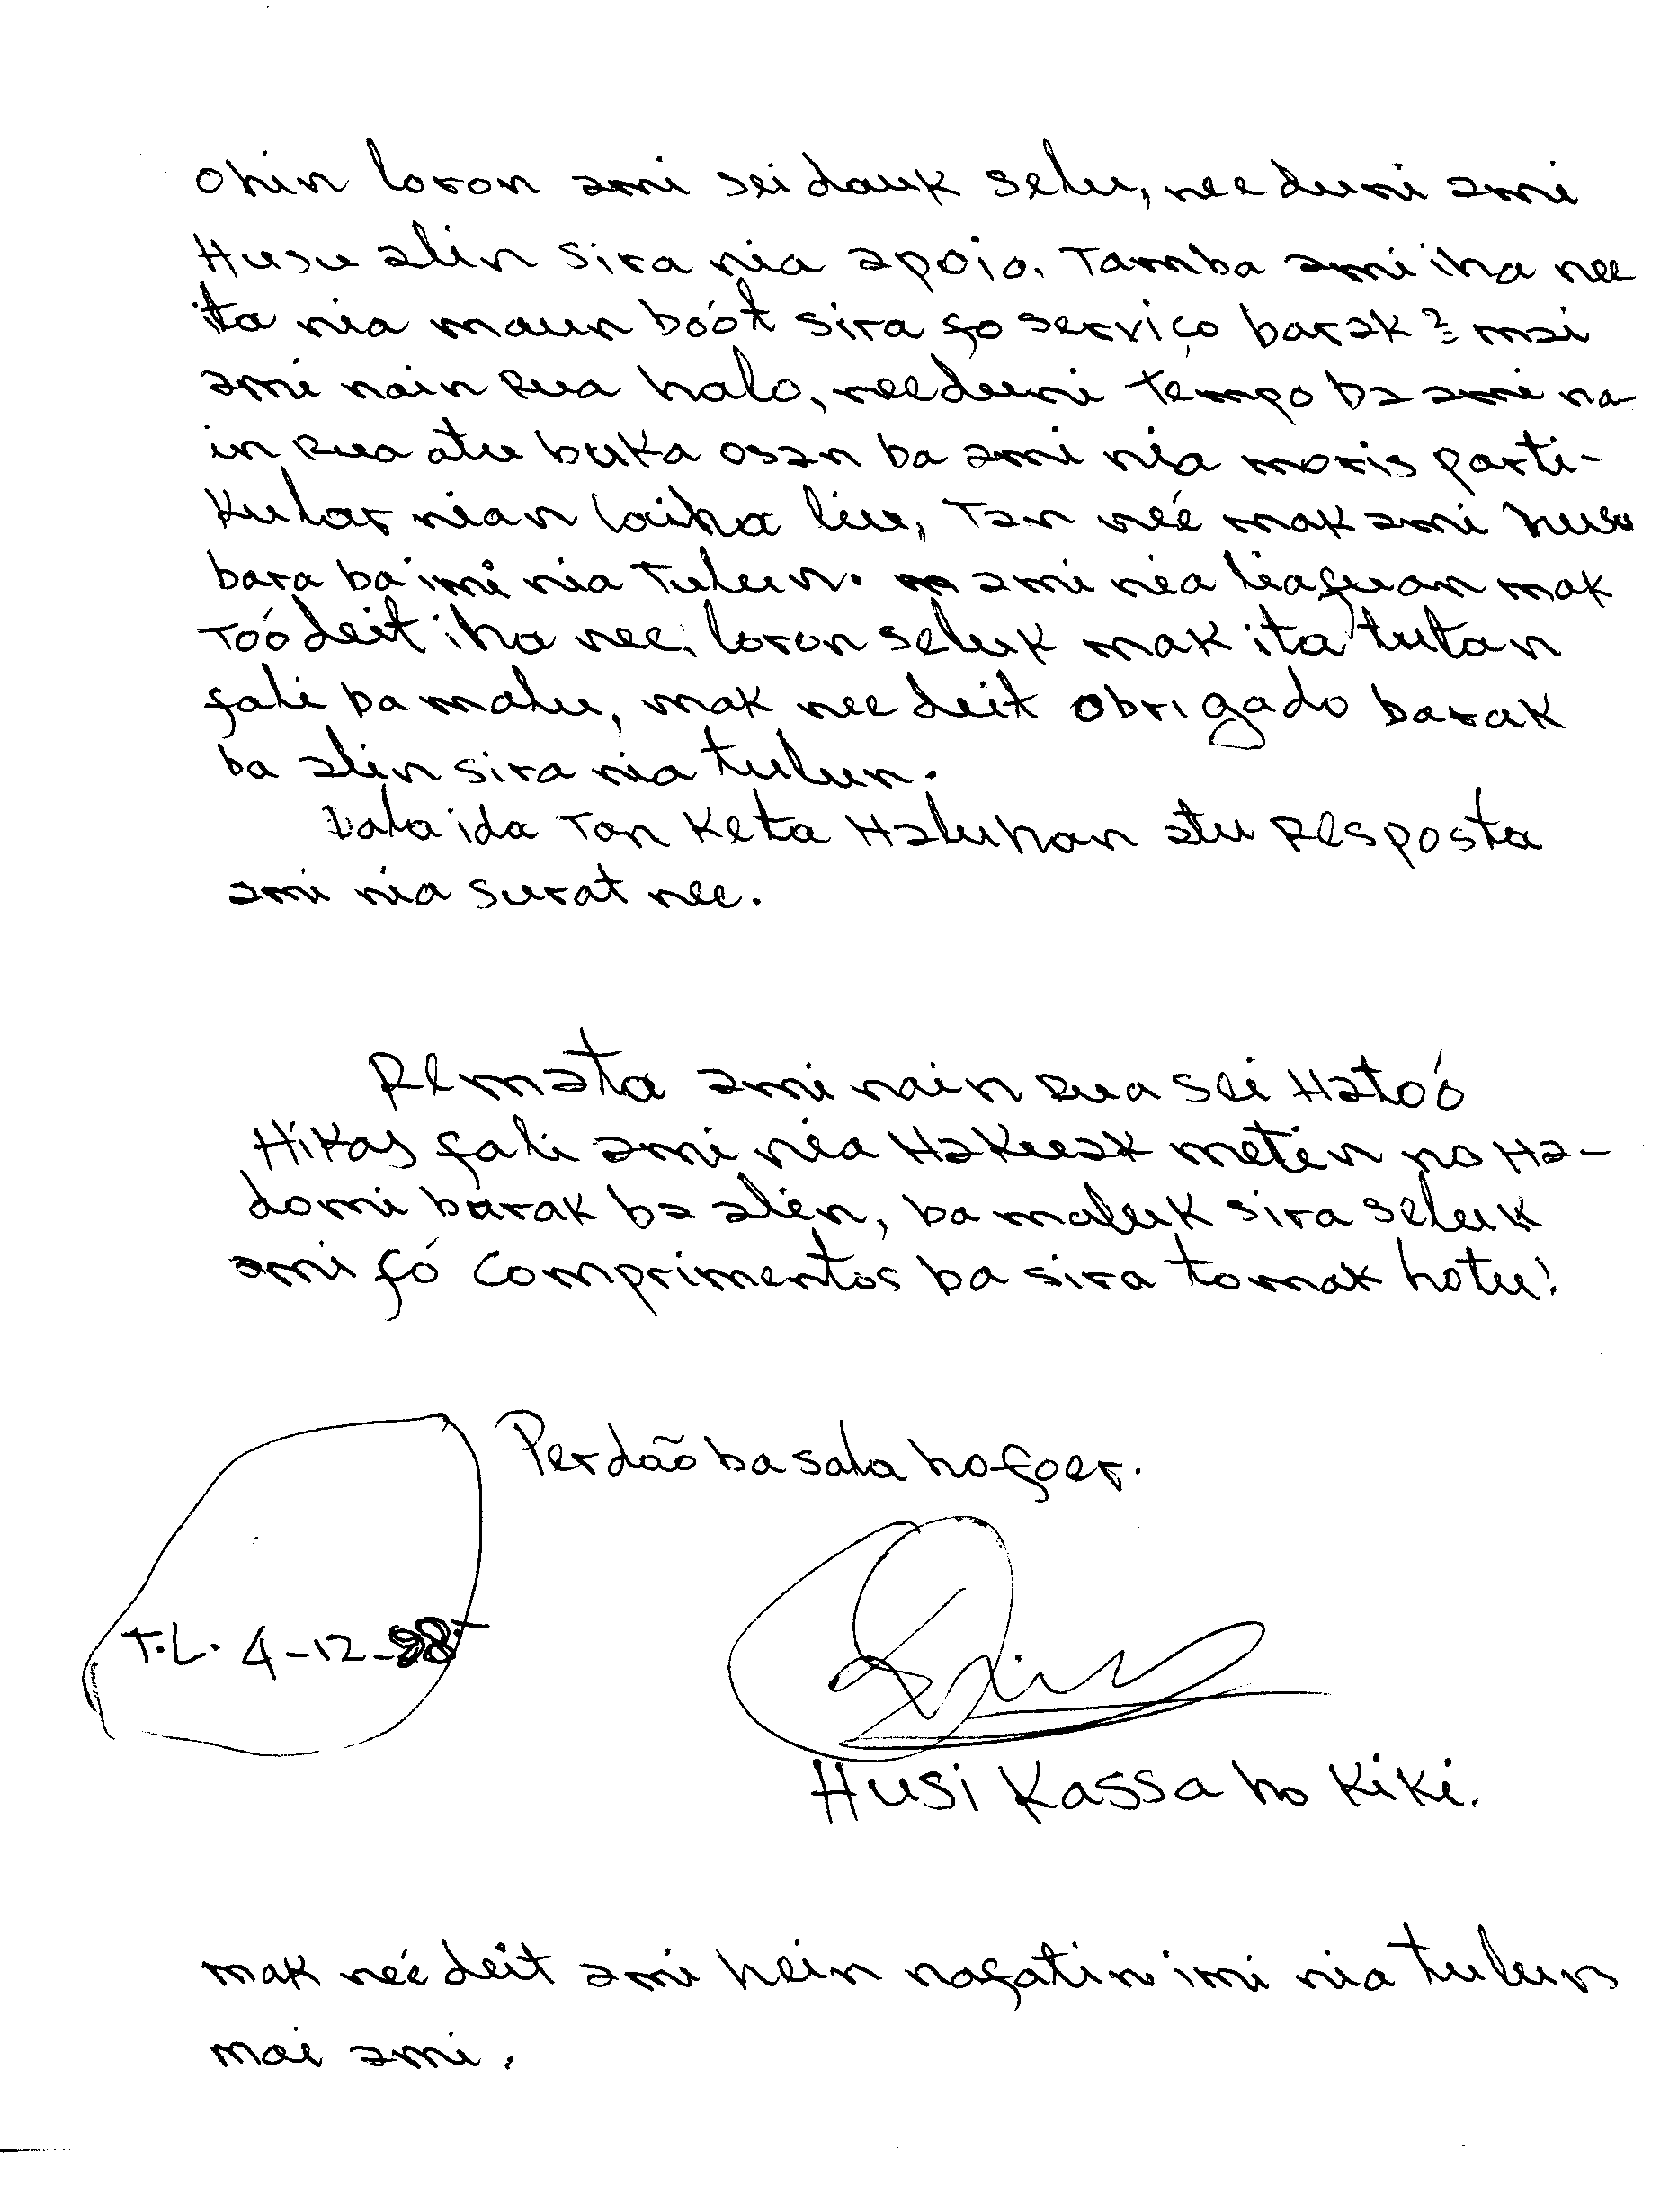 ohin loron ami seidauk selu, nee duni ami
Husu alin sira nia apoio. Tamba ami iha nee
ita nia maun boót sira fo serviço barak mai
ami nain Rua halo, nee duni tempo ba ami na-
in Rua atu buka osan ba ami nia moris parti-
Kular nian laiha liu, Tan neé mak ami husu
bara ba imi nia Tulun. ami nia liafuan mak
Toó deit iha nee, loron seluk mak ita tutan
fali ba malu, mak nee deit obrigado barak
ba alin sira nia tulun.
Dala ida Tan Keta Haluhan atu Resposta
ami nia surat nee.
Remata ami nain Rua sei Hatoó
Hikas fali ami nia Hakuak metin no Ha-
domi barak ba alin, ba maluk sira seluk
ami fó Comprimentos ba sira tomak hotu!
Perdão ba sala ho foer.
T.L. 4-12-98
Husi Kassa ho Kiki.
mak neé deit ami hein nafatin imi nia tulun
mai ami.